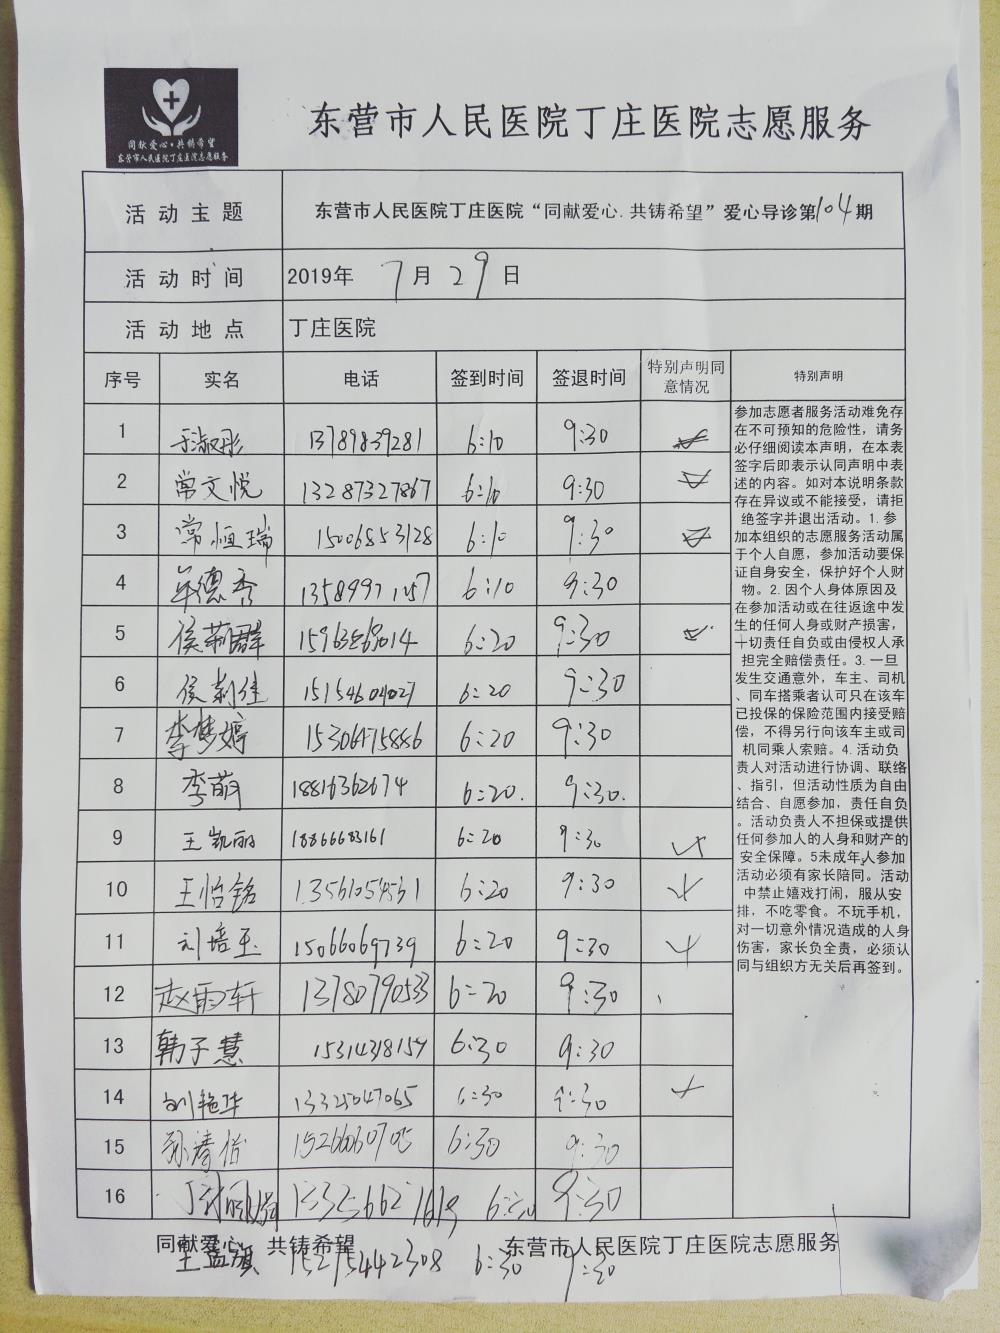 同献爱心·共铸希望
东营市人民医院丁庄医院志愿服务
东营市人民医院丁庄医院志愿服务
活动主题 东营市人民医院丁庄医院“同献爱心.共铸希望”爱心导诊第104期
活动时间 2019年 7月29日
活动地点 丁庄医院
序号 实名 电话 签到时间 签退时间 特别声明同意情况 特别声明
1 于淑彤 13789839281 6:10 9:30
2 常文悦 13287327867 6:10 9:30
3 常恒瑞 15006853128 6:10 9:30
4 牟德秀 6:10 9:30
5 侯莉群 6:20 9:30
6 侯莉佳 15154604027 6:20 9:30
7 李梦婷 6:20 9:30
8 李萌 18816362674 6:20. 9:30.
9 王凯丽 18866683161 6:20 9:30
10 王怡铭 6:20 9:30
11 刘培玉 15066069739 6:20 9:30
12 赵雨轩 13780790533 6:20 9:30
13 韩子慧 15314318154 6:30 9:30
14 刘艳华 13325047065 6:30 9:30
15 6:30 9:30
16 6:30 9:30
参加志愿者服务活动难免存
在不可预知的危险性，请务
必仔细阅读本声明，在本表
签字后即表示认同声明中表
述的内容。如对本说明条款
存在异议或不能接受，请拒
绝签字并退出活动。1.参
加本组织的志愿服务活动属
于个人自愿，参加活动要保
证自身安全，保护好个人财
物。2.因个人身体原因及
在参加活动或在往返途中发
生的任何人身或财产损害，
一切责任自负或由侵权人承
担完全赔偿责任。3.一旦
发生交通意外，车主、司机
、同车搭乘者认可只在该车
已投保的保险范围内接受赔
偿，不得另行向该车主或司
机同乘人索赔。4.活动负
责人对活动进行协调、联络
、指引，但活动性质为自由
结合、自愿参加，责任自负
。活动负责人不担保或提供
任何参加人的人身和财产的
安全保障。5未成年人参加
活动必须有家长陪同。活动
中禁止嬉戏打闹，服从安
排，不吃零食。不玩手机，
对一切意外情况造成的人身
伤害，家长负全责，必须认
同与组织方无关后再签到。
同献爱心 共铸希望 东营市人民医院丁庄医院志愿服务
王孟旗 15275442308 6:30 9:30